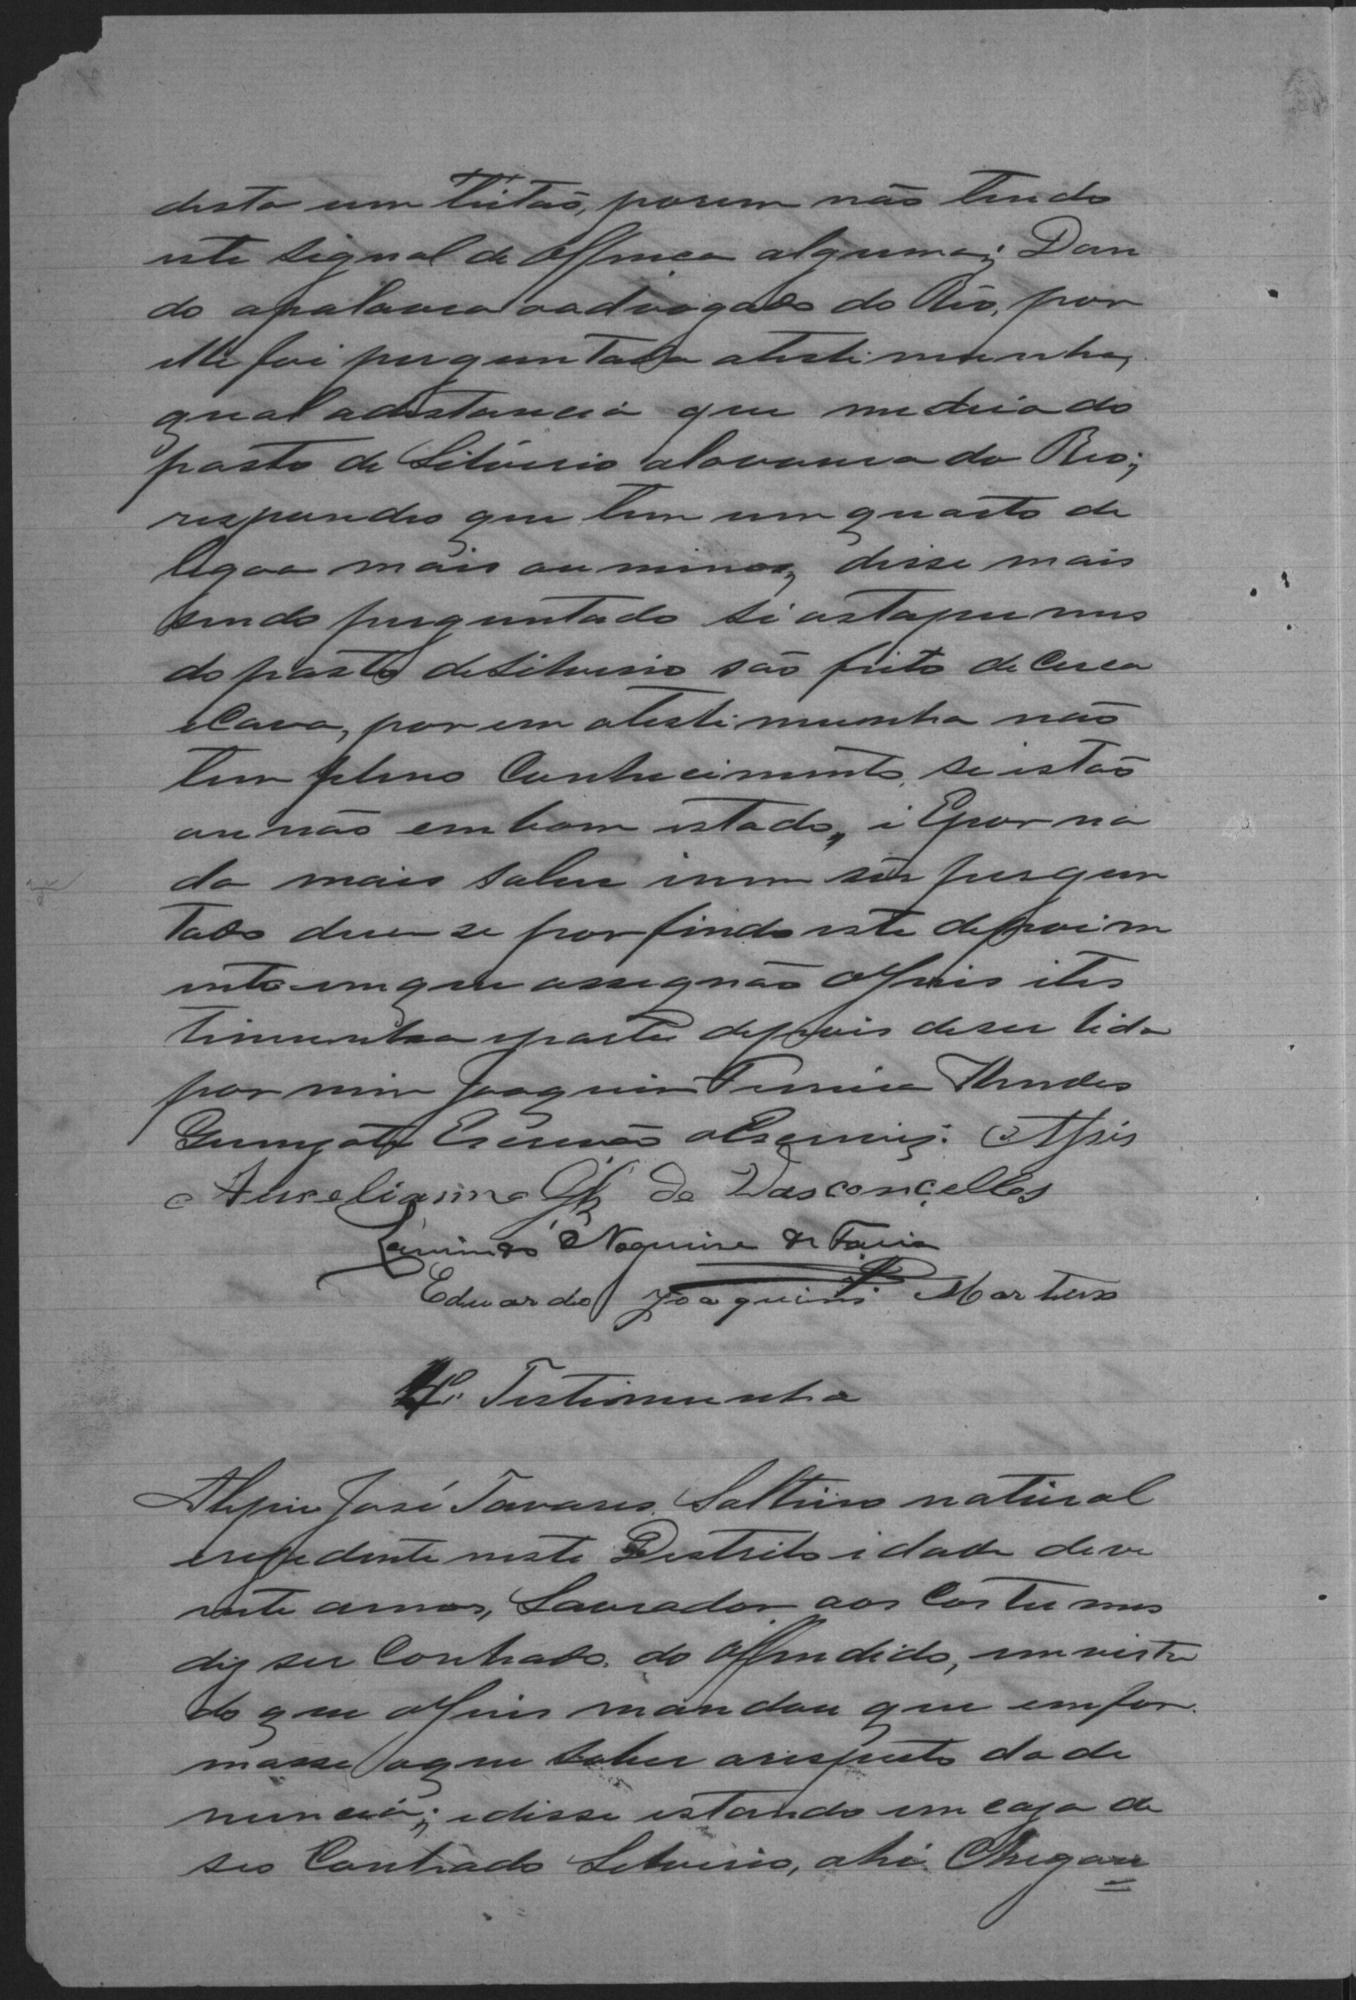 desta um leitão, porem não tendo
este signal de offença alguma; Dan
do apalavra oadvogado do Réo, por
elle foi perguntado atestimunha,
qual adistancia que mediado
pasto de Silverio alavoura do Reo;
respondeo que tem um quarto de
legoa mais ou minos, disse mais
sendo perguntado si ostapumes
do pasto deSilverio são feito de Cerca
eCava, porem atestimunha não
tem pleno Conhecimento, si estão
ounão embom estado, i Epor na
da mais saber inem ser pergun
tado deuse porfindo este depoim
ento emque assegnão oJuis ites
timunha eparte depois deser lida
por mim Joaquim Mendes
Escrivão oEscrevi.
Aureliano de Vasconcellos
Nogueira de Faria
Eduardo Joaquim Martins
4ª Testimunha
José Tavares Solteiro natural
eresedente neste Destrito idade deve
inte annos, Lavrador aos Costumes
diz ser Contrado do offendido, emvista
do que oJuis mandou que emfor
masse oque saber arespeito da de
nuncia; edisse estando em caza de
seo Contrado Silverio, ahi Chegou